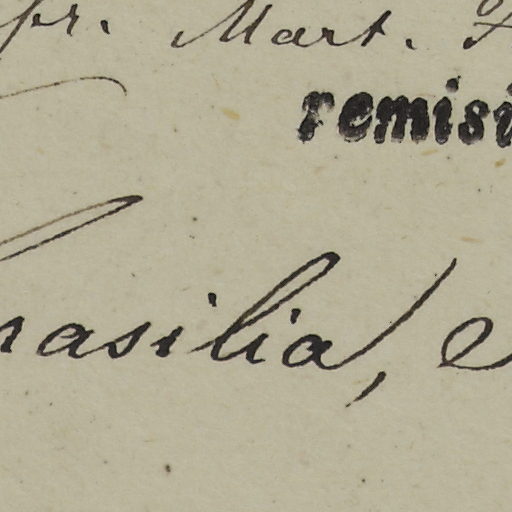 fr. Mart.
remisi
rasilia,